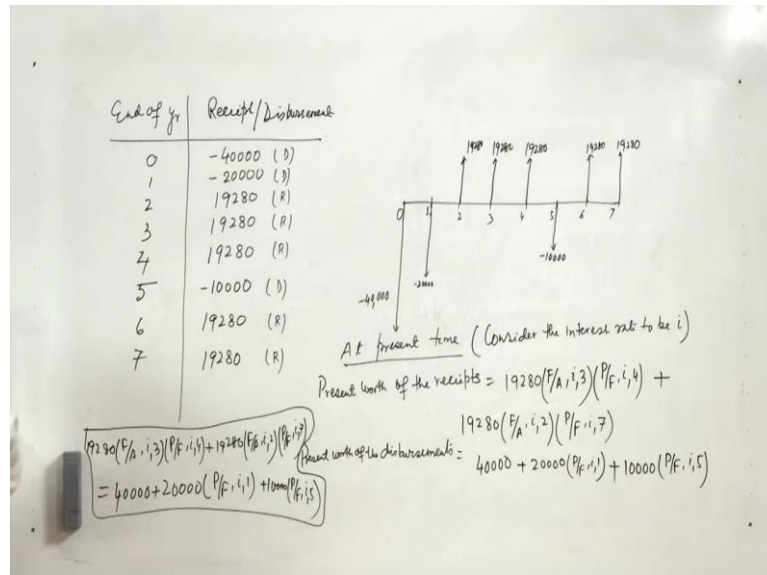 End of yr Receipt/Disbursement
0 -40000 (D)
1 -20000 (D)
2 19280 (R)
3 19280 (R)
4 19280 (R)
5 -10000 (D)
6 19280 (R)
7 19280 (R)
19280 19280 19280 19280 19280
0 1 2 3 4 5 6 7
-10000
-20000
-40,000
At present time (Consider the interest rate to be i)
Present worth of the receipts = 19280(F/A, i, 3)(P/F, i, 4) +
19280(F/A, i, 2)(P/F, i, 7)
Present worth of the disbursements =
40000 + 20000(P/F, i, 1) + 10000(P/F, i, 5)
19280(F/A, i, 3)(P/F, i, 4) + 19280(F/A, i, 2)(P/F, i, 7)
= 40000 + 20000(P/F, i, 1) + 10000(P/F, i, 5)